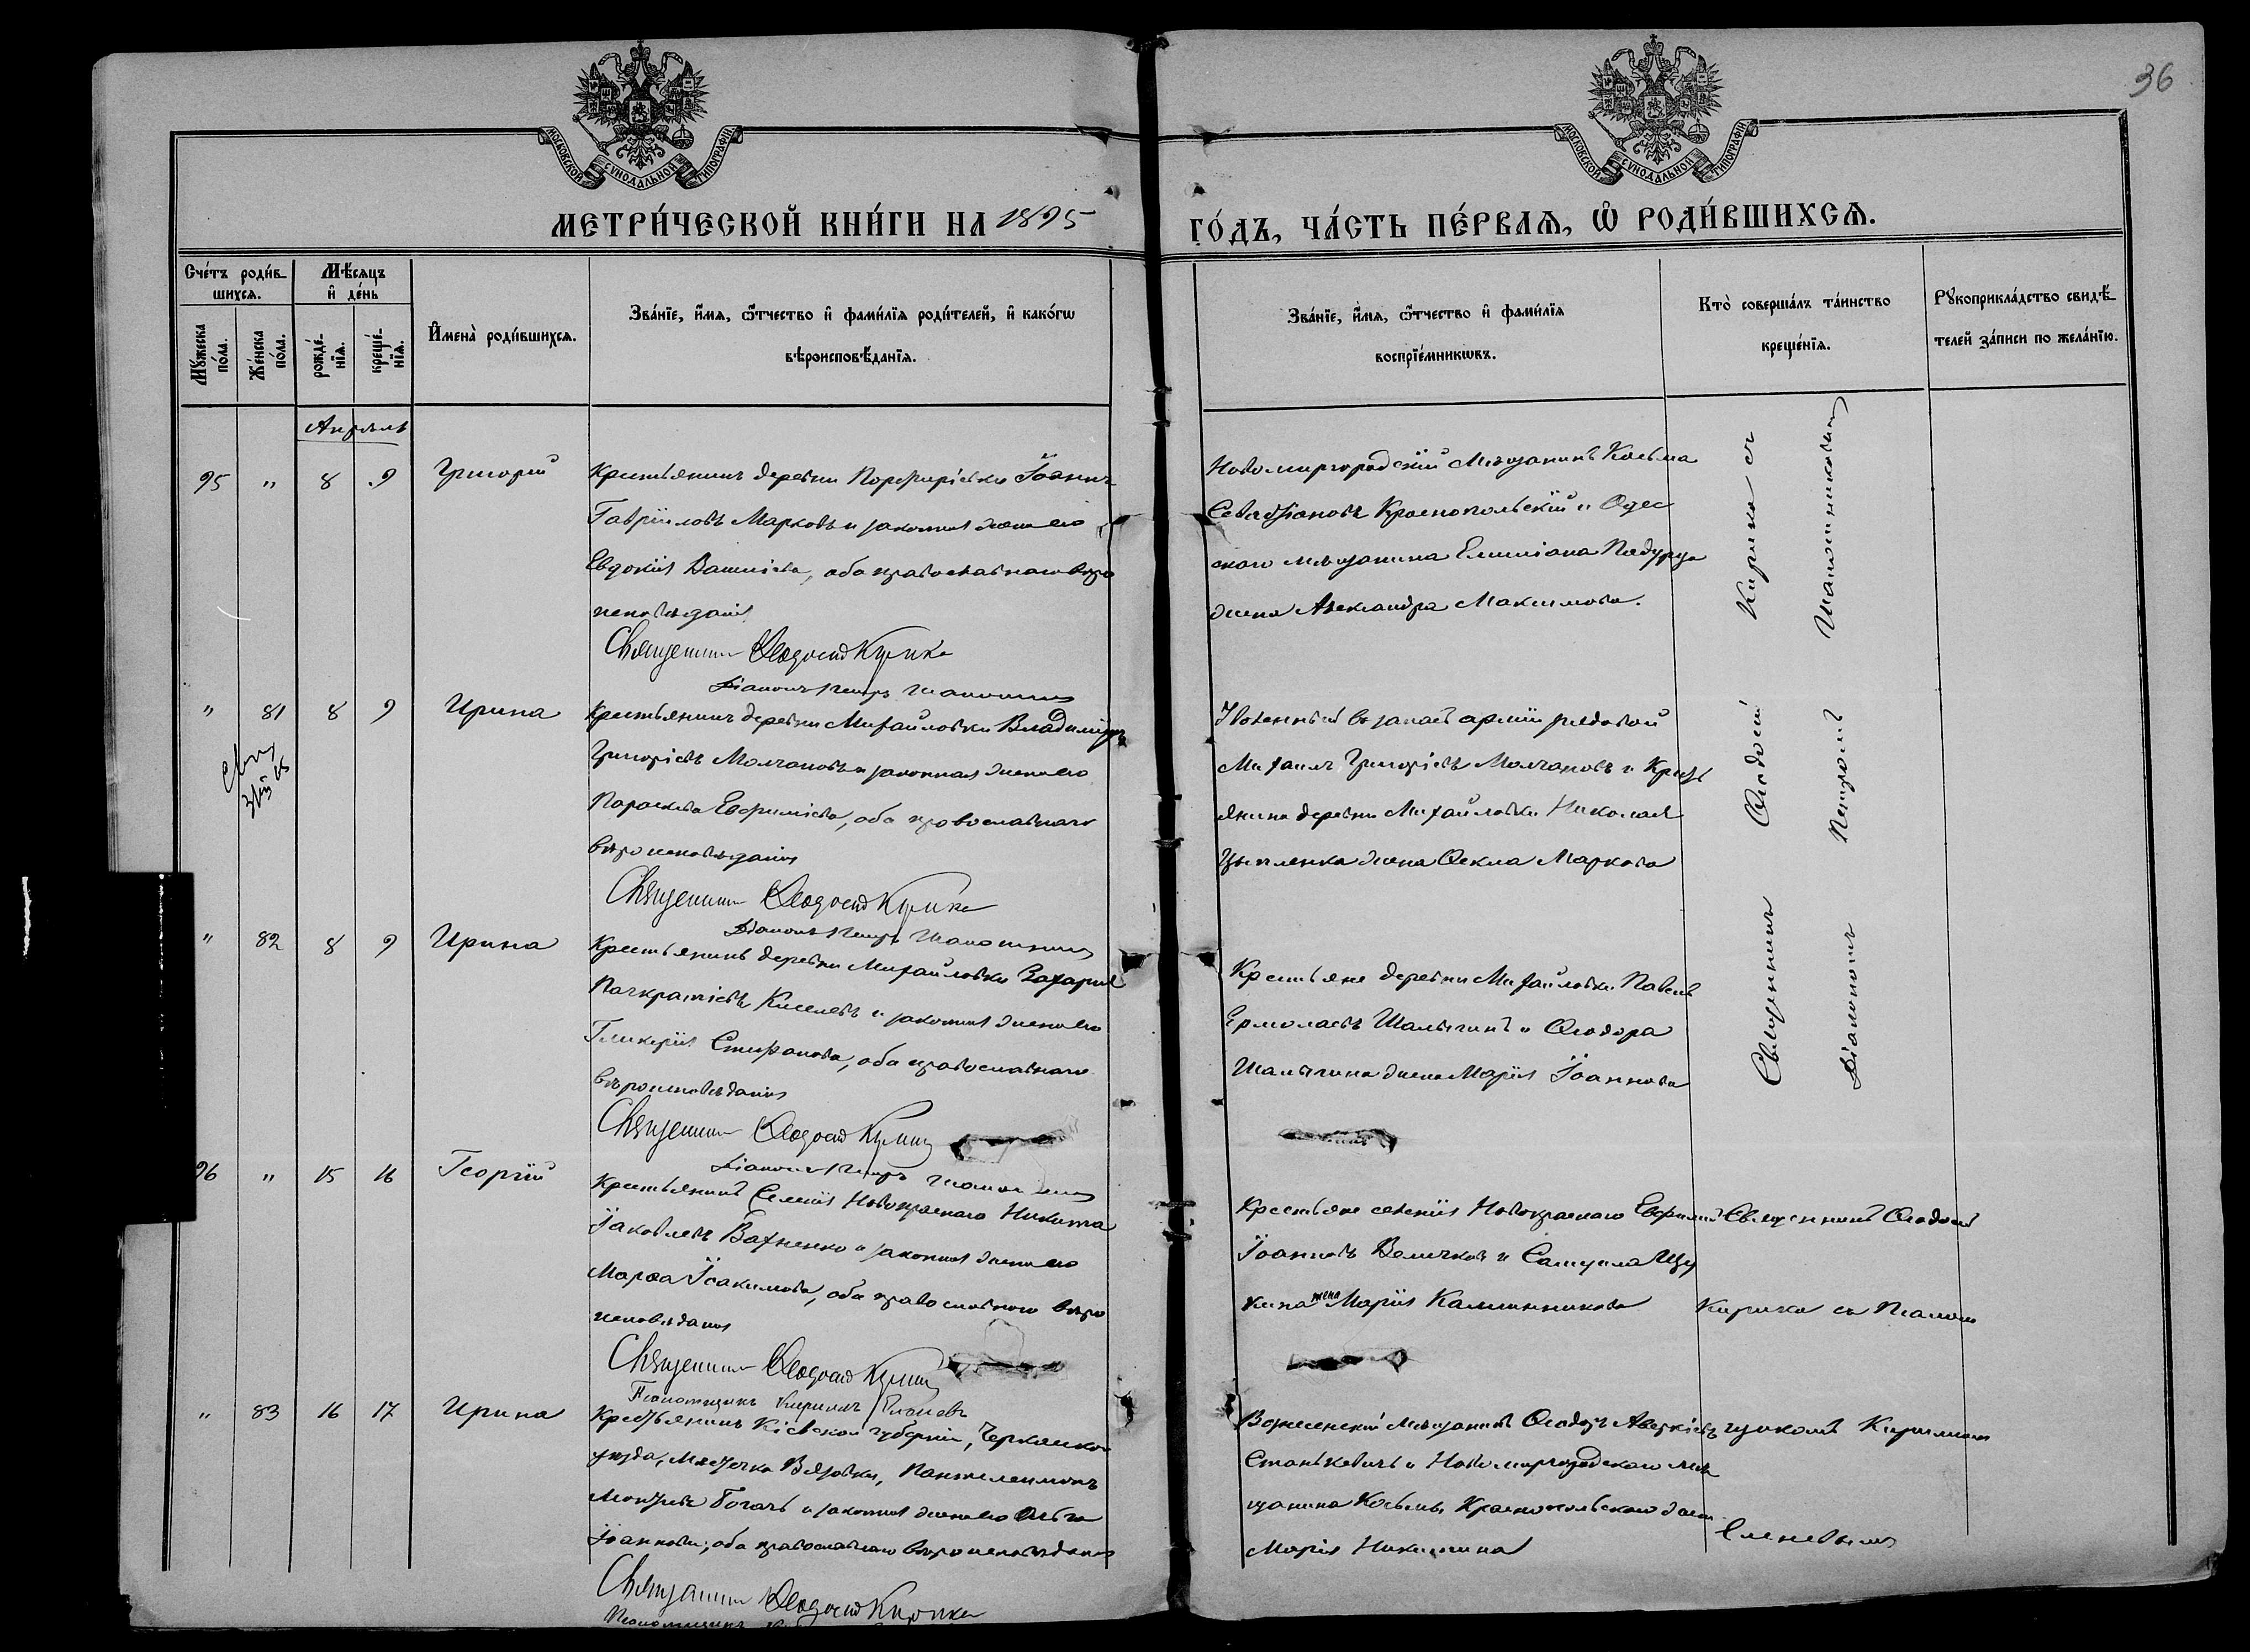 36
МОСКОВСКОЙ СѴНОДАЛЬНОЙ ТИПОГРАФІИ
МОСКОВСКОЙ СѴНОДАЛЬНОЙ ТИПОГРАФІИ
МЕТРИ́ЧЕСКОЙ КНИ́ГИ НА 1895 ГО́ДЪ, ЧА́СТЬ ПЕ́РВАѦ, Ѽ РОДИ́ВШИХСѦ.
Сче́тъ роди́в-
шихсѧ.
Мꙋжеска
по́ла.
Же́нска
по́ла.
Мѣ́сѧцъ
и҆ де́нь
рожде́-
нїѧ.
креще́-
нїѧ.
И҆мена̀ роди́вшихсѧ.
Зва́нїе, и҆́мѧ, ѻ҆́тчество и҆ фами́лїѧ роди́телей, и҆ како́гѡ
вѣроисповѣ́данїѧ.
Зва́нїе, и҆́мѧ, ѻ҆́тчество и҆ фами́лїѧ
воспрїе́мникѡвъ.
Кто̀ соверша́лъ та́инство
креще́нїѧ.
Рꙋкоприкла́дство свидѣ́-
телей за́писи по жела́нїю.
Апрѣль
95 " 8 9 Григорій
Крестьянинъ деревни Порфиріевки Іоаннъ
Гавріиловъ Марковъ и законная жена его
Евдокія Василіева, оба православнаго вѣро
исповѣданія
Священникъ Ѳеодосій Кирика
Діаконъ Петръ
Новомиргородскій мѣщанинъ Косьма
Севастіановъ Краснопольскій и Одес
скаго мѣщанина Емиліана Падурца
жена Александра Максимова.
" 81 8 9 Ирина
Крестьянинъ деревни Михайловки Владиміръ
Григоріевъ Молчановъ и законная жена его
Параскева Евфиміева, оба православнаго
вѣроисповѣданія
Священникъ Ѳеодосій Кирика
Діаконъ Петръ
Уволенный въ запасъ арміи рядовой
Михаилъ Григоріевъ Молчановъ и Крест
янина деревни Михайловки Николая
Цыпленка жена Ѳекла Маркова
" 82 8 9 Ирина
Крестьянинъ деревни Михайловки Захарія
Панкратіевъ Киселевъ и законная жена его
Гликерія Стефанова, оба православнаго
вѣроисповѣданія
Священникъ Ѳеодосій Кирика
Діаконъ Петръ
Крестьяне деревни Михайловки Павелъ
Ермолаевъ Шалыгинъ и Ѳеодора
Шалыгина жена Марія Іоаннова
Священникъ Ѳеодосій Кирика съ
Діакономъ Петромъ
96 " 15 16 Георгій
Крестьянинъ селенія Новокраснаго Никита
Іаковлевъ Вахненко и законная жена его
Марѳа Іоакимова, оба православнаго вѣро
исповѣданія
Священникъ Ѳеодосій Кирика
Псаломщикъ Кириллъ
Крестьяне селенія Новокраснаго Евфимій
Іоанновъ Величковъ и Самуила Щу
кина жена Марія Калинникова
" 83 16 17 Ирина
Крестьянинъ Кіевской губерніи, Черкаскаго
уѣзда, мѣстечка Вязовки, Пантелеимонъ
Богачъ и законная жена его Ольга
Іоаннова, оба православнаго вѣроисповѣданія
Священникъ Ѳеодосій Кирика
Псаломщикъ
Вознесенскій мѣщанинъ Ѳеодоръ Аверкіевъ
Станкевичъ и Новомиргородскаго мѣ
щанина Косьмы Краснопольскаго
Марія Никитина
Священникъ Ѳеодосій
Кирика съ Псалом
щикомъ Кирилломъ